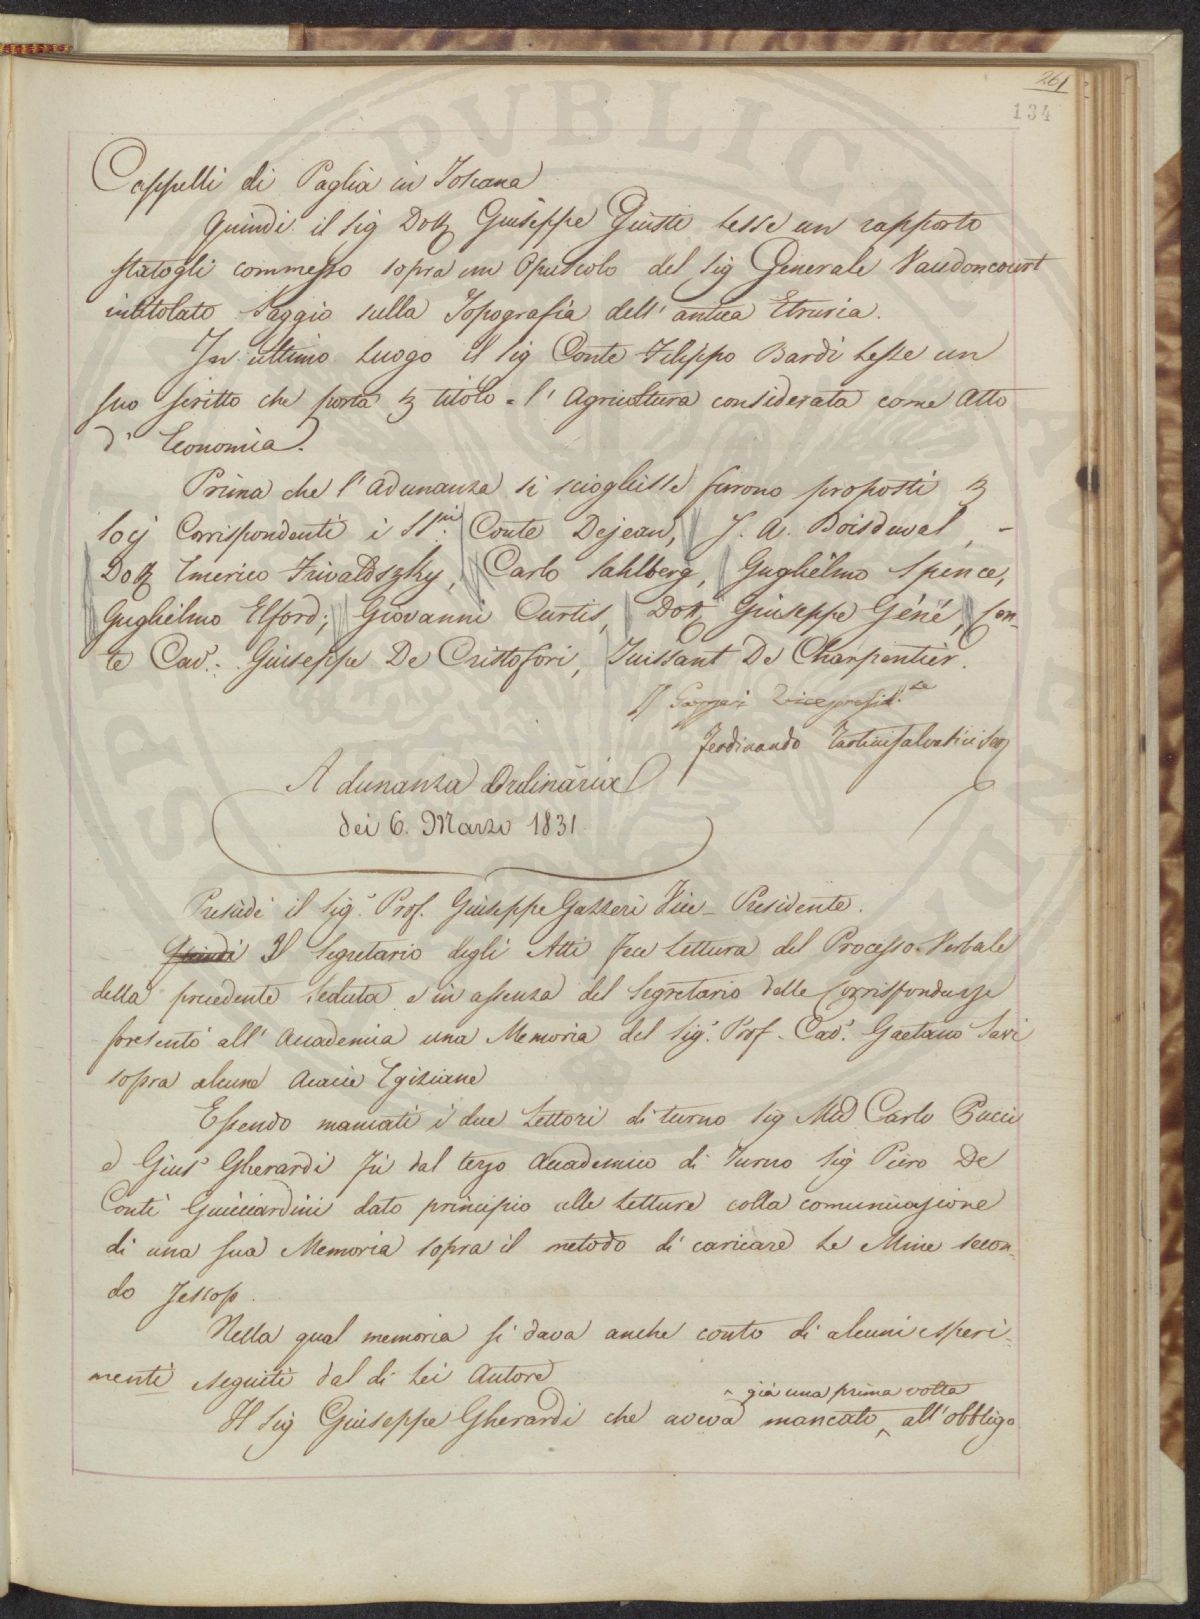 261
134
Cappelli di Paglia in Toscana
Quindi il Sig Dott Giuseppe Giusti lesse un rapporto
statogli commesso sopra un Opuscolo del Sig Generale Vaudoncourt
intitolato Saggio sulla Topografia dell' antica Etruria.
In ultimo luogo il Sig Conte Filippo Bardi lesse un
suo scritto che porta p titolo = l' Agricoltura considerata come Atto
d' Economia.
Prima che l' Adunanza si sciogliesse furono proposti p
Socj Corrispondenti i SS.ri Conte Dejean, J. A. Boisduval, -
Dott Emerico Frivaldszky, Carlo Sahlberg, Guglielmo Spence,
Guglielmo Elford; Giovanni Curtis, Dott Giuseppe Géné, Con-
te Cav.: Giuseppe De Cristofori, Tuissant De Charpentier.
G Gazzeri Vicepresid.te
Ferdinando Tartini Salvatici Seg
Adunanza Ordinaria
dei 6. Marzo 1831
Presiede il Sig. Prof. Giuseppe Gazzeri Vice-Presidente.
Quindi Il Segretario degli Atti fece lettura del Processo-Verbale
della precedente seduta e in assenza del Segretario delle Corrispondenze
presentò all' Accademia una Memoria del Sig. Prof. Cav. Gaetano Savi
sopra alcune Acacie Egiziane
Essendo mancati i due Lettori di turno Sig Mse Carlo Pucci
e Gius Gherardi fù dal terzo Accademico di Turno Sig Piero De
Conti Guicciardini dato principio alle letture colla comunicazione
di una sua Memoria sopra il metodo di caricare le Mine secon-
do Jessop.
Nella qual memoria si dava anche conto di alcuni esperi-
menti eseguiti dal di Lei Autore
^ già una prima volta
Il Sig Giuseppe Gherardi che aveva mancato ^ all' obbligo